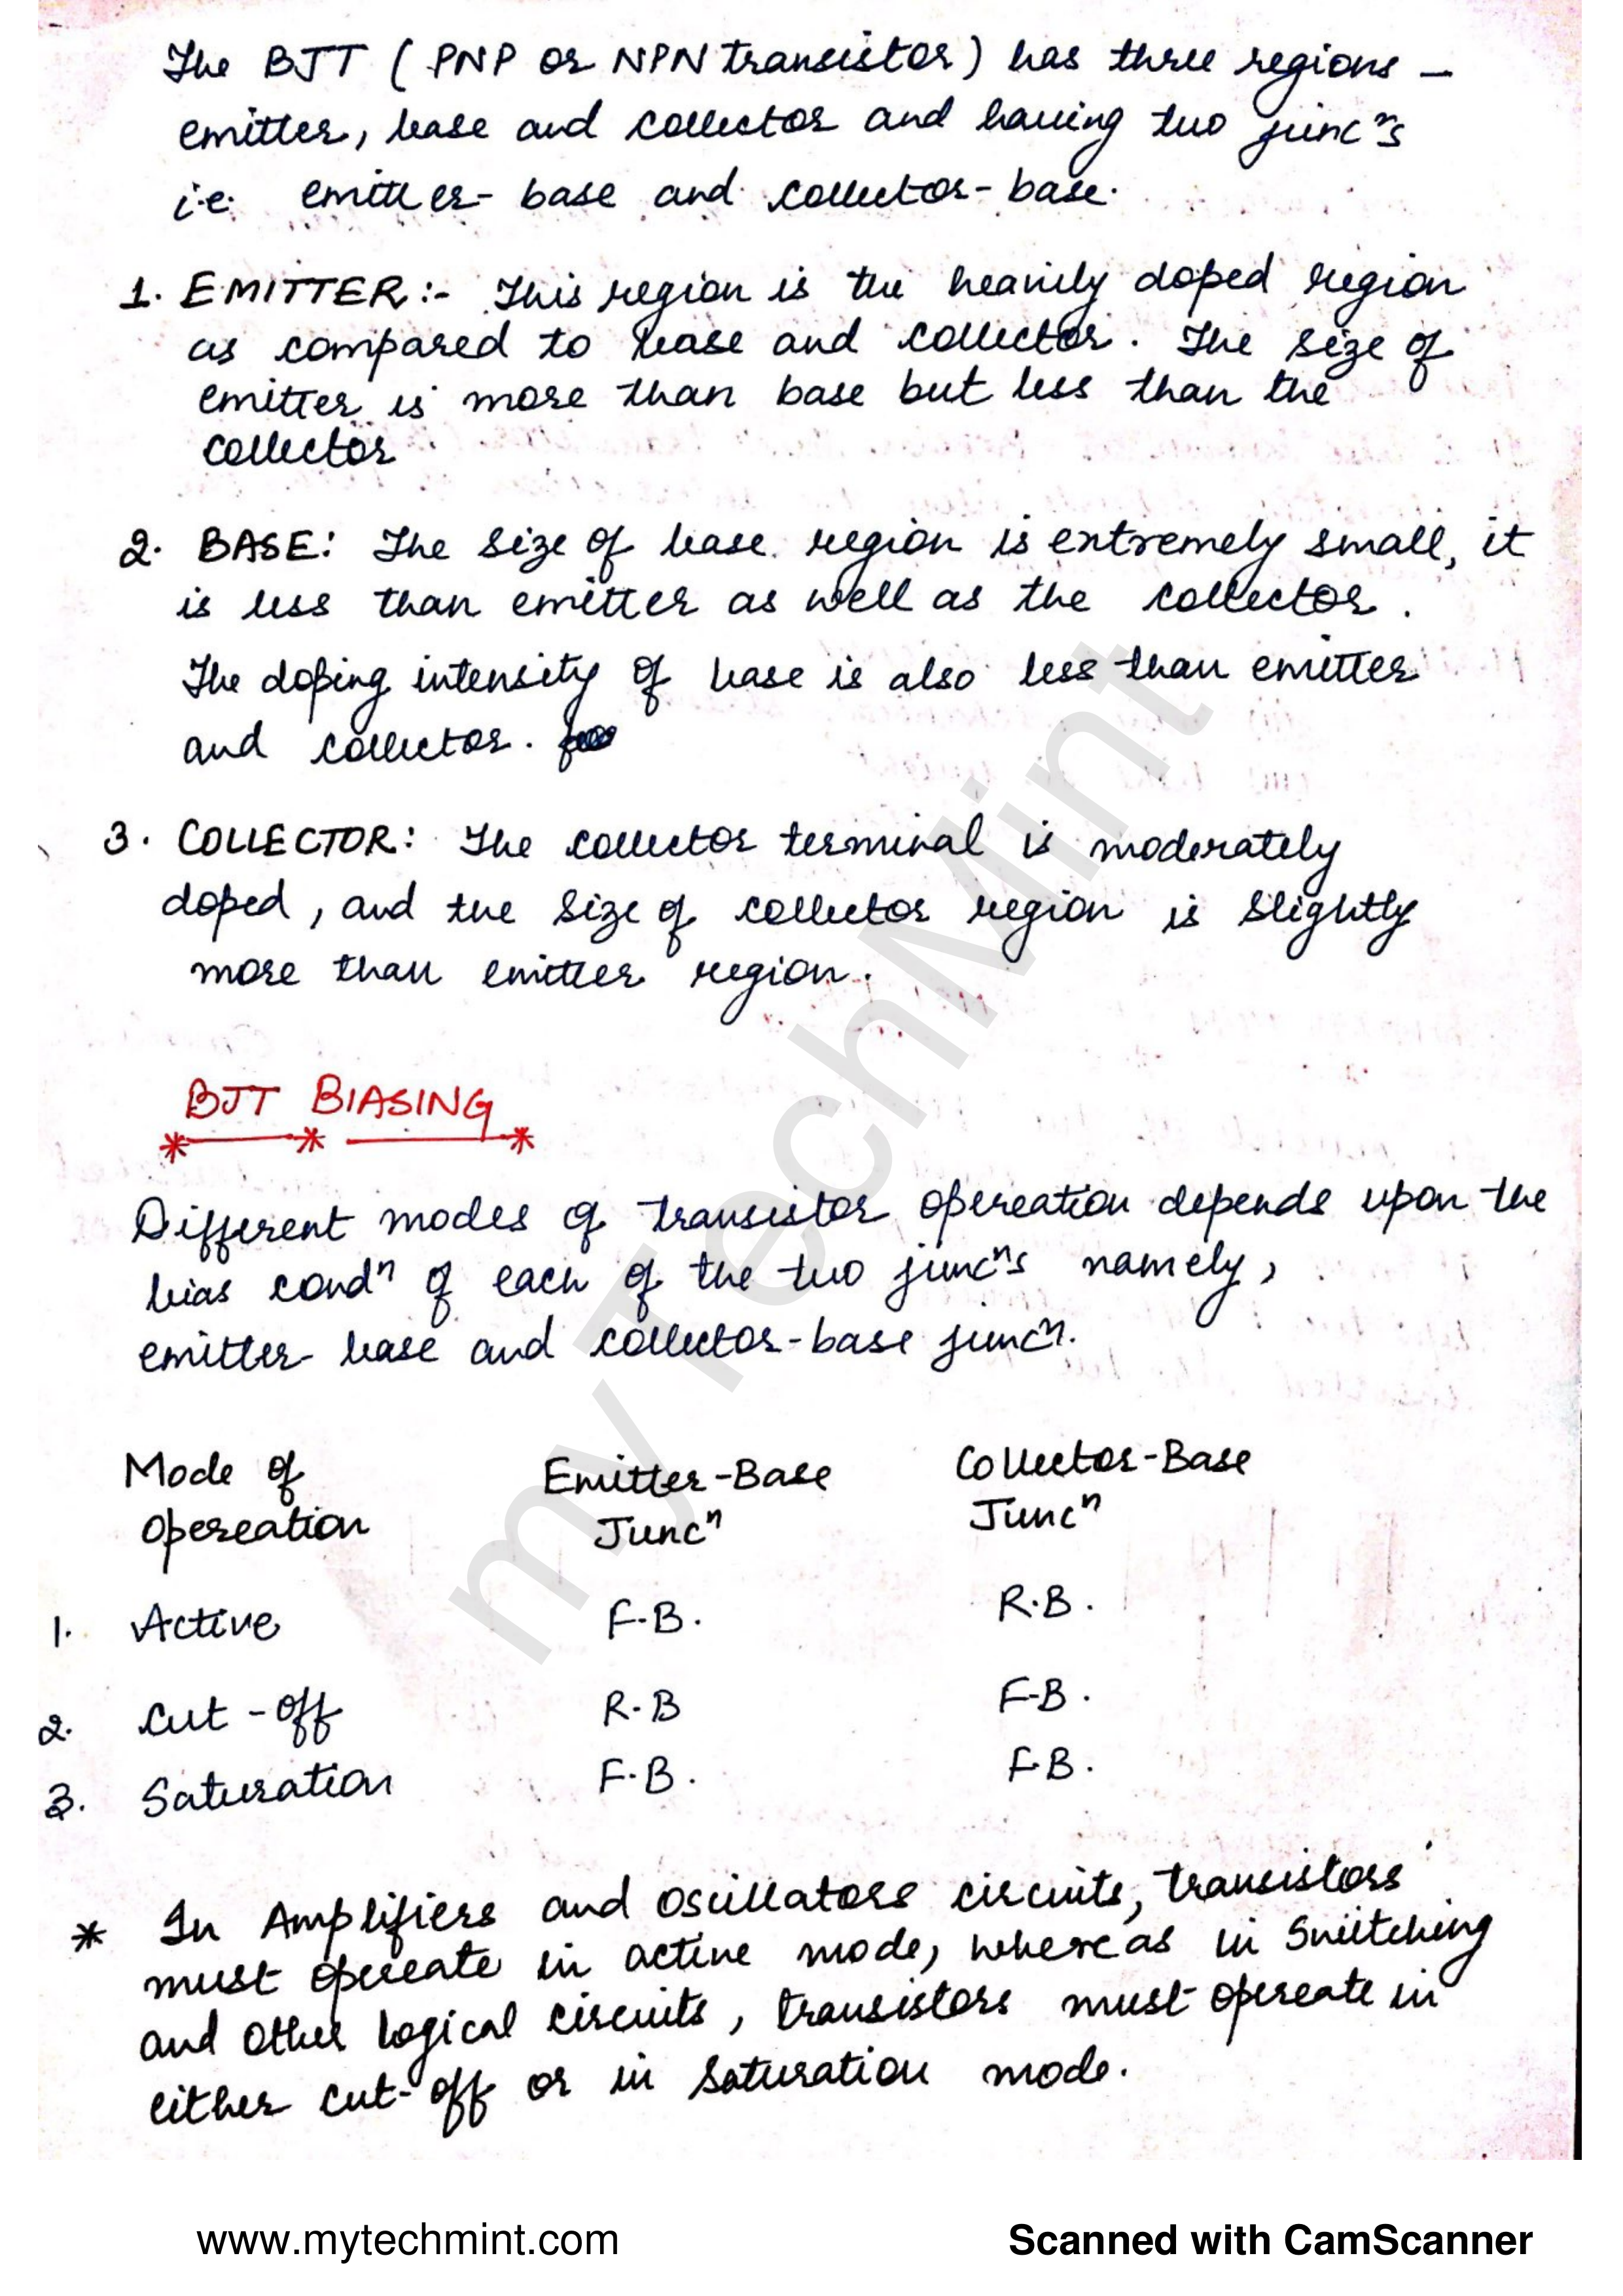 The BJT ( PNP or NPN transistor ) has three regions –
emitter, base and collector and having two juncⁿs
i.e. emitter- base and collector- base.
1. EMITTER :- This region is the heavily doped region
as compared to base and collector. The size of
emitter is more than base but less than the
collector
2. BASE: The size of base region is extremely small, it
is less than emitter as well as the collector.
The doping intensity of base is also less than emitter
and collector.
3. COLLECTOR: The collector terminal is moderately
doped, and the size of collector region is slightly
more than emitter region.
BJT BIASING
Different modes of transistor opereation depends upon the
bias condⁿ of each of the two juncⁿs namely,
emitter base and collector-base juncⁿ.
Mode of Emitter-Base Collector-Base
opereation Juncⁿ Juncⁿ
1. Active F.B. R.B.
2. Cut-off R.B F.B.
3. Saturation F.B. F.B.
* In Amplifiers and oscillators circuits, transistors
must opereate in active mode, whereas in switching
and other logical circuits, transistors must opereate in
either cut-off or in saturation mode.
myTechMint
www.mytechmint.com Scanned with CamScanner